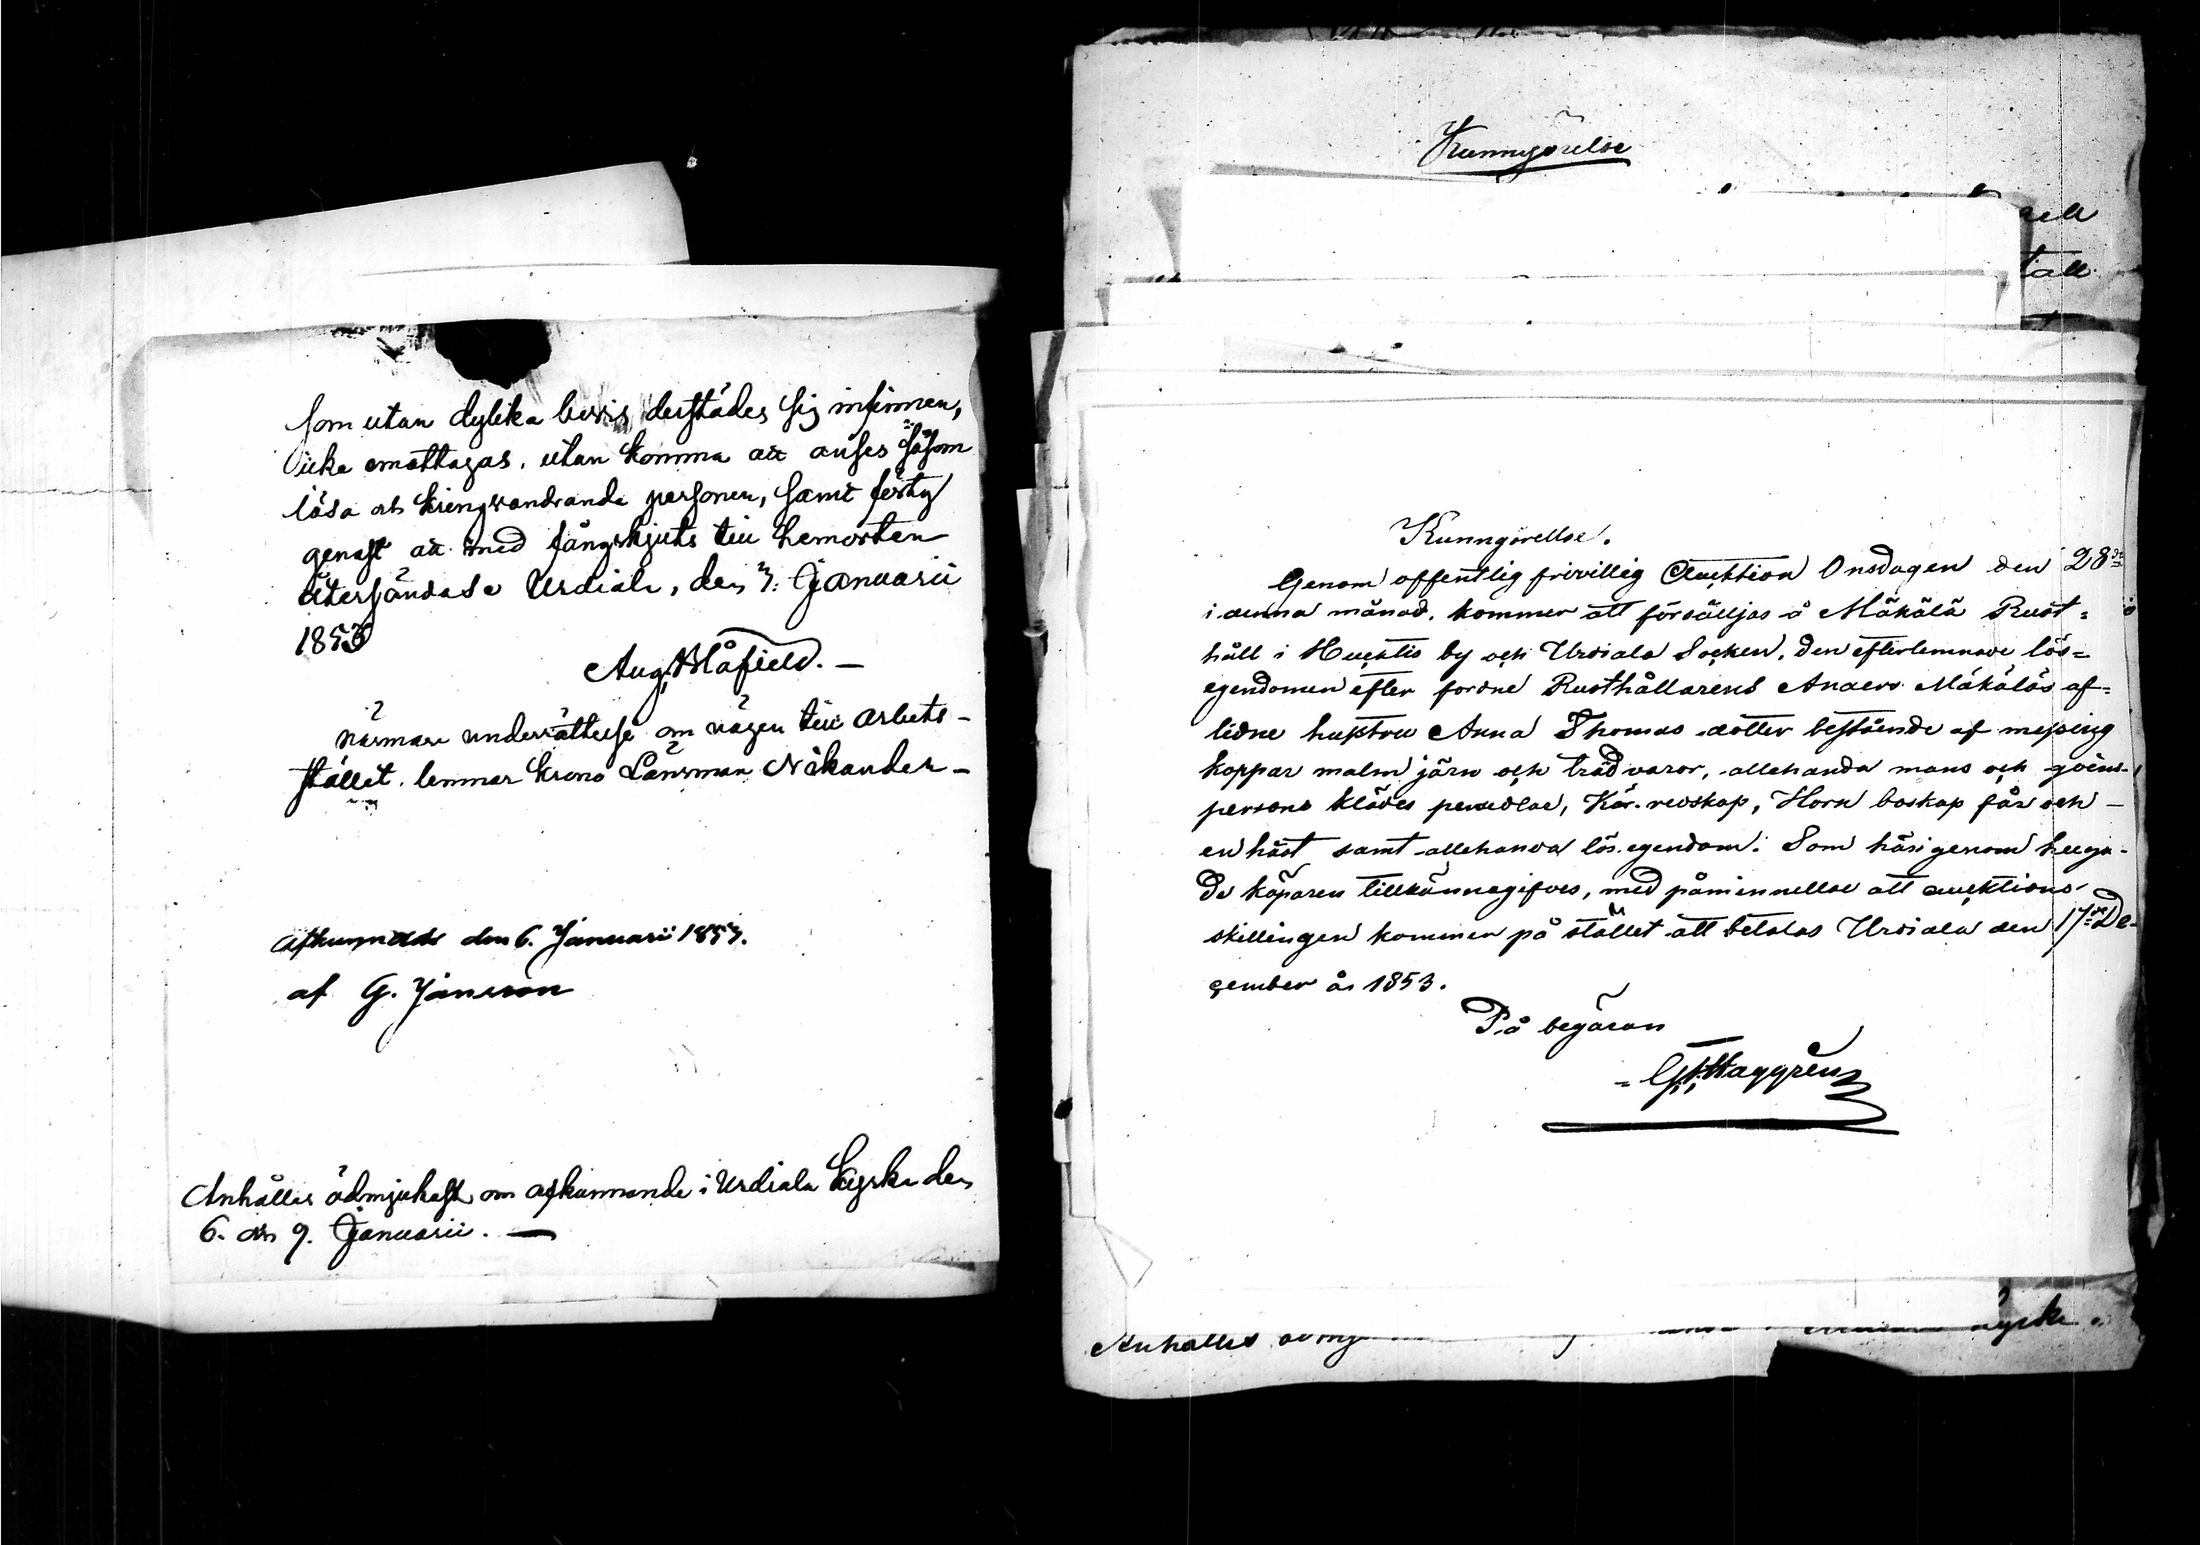 som utan dylika bevis derstädes sig infinna,
icke emottagas, utan komma att anses såsom
lösa och kringvandrande personer, samt
genast att med fångskjuts till hemorten
återsändas. Urdiala, den 3. Januarii
1853
Aug. Blåfield. —
Närmare underrättelse om vägen till arbets-
stället lemnar Krono Länsman Nikander —
Afkunnadt den 6. Januarii 1853.
af G. Jansson
Anhålles ödmjukast om afkunnande i Urdiala Kyrka den
6. och 9. Januarii. —
Kunngörelse
Kunngörellse.
Genom offentlig frivillig Auktion Onsdagen den 28de
i denna månad, kommer att försälljas å Mäkälä Rust-
håll i Huhtis by och Urdiala Socken, den efterlemnade lös-
egendomen efter fordne Rusthållarens Anders Mäkäläs af-
lidne hustru Anna Thomas dotter bestående af messing
koppar malm järn och trädvaror, allehanda mans och qvins-
persons klädes persedlar, Kör redskap, Horn boskap får och
en häst samt allehanda lös egendom. Som härigenom huga-
de köparen tillkännagifves, med påminnellse att auktions
skillingen kommer på stället att betalas Urdiala den 17de De-
cember år 1853.
På begäran
Haggrén
Anhålles